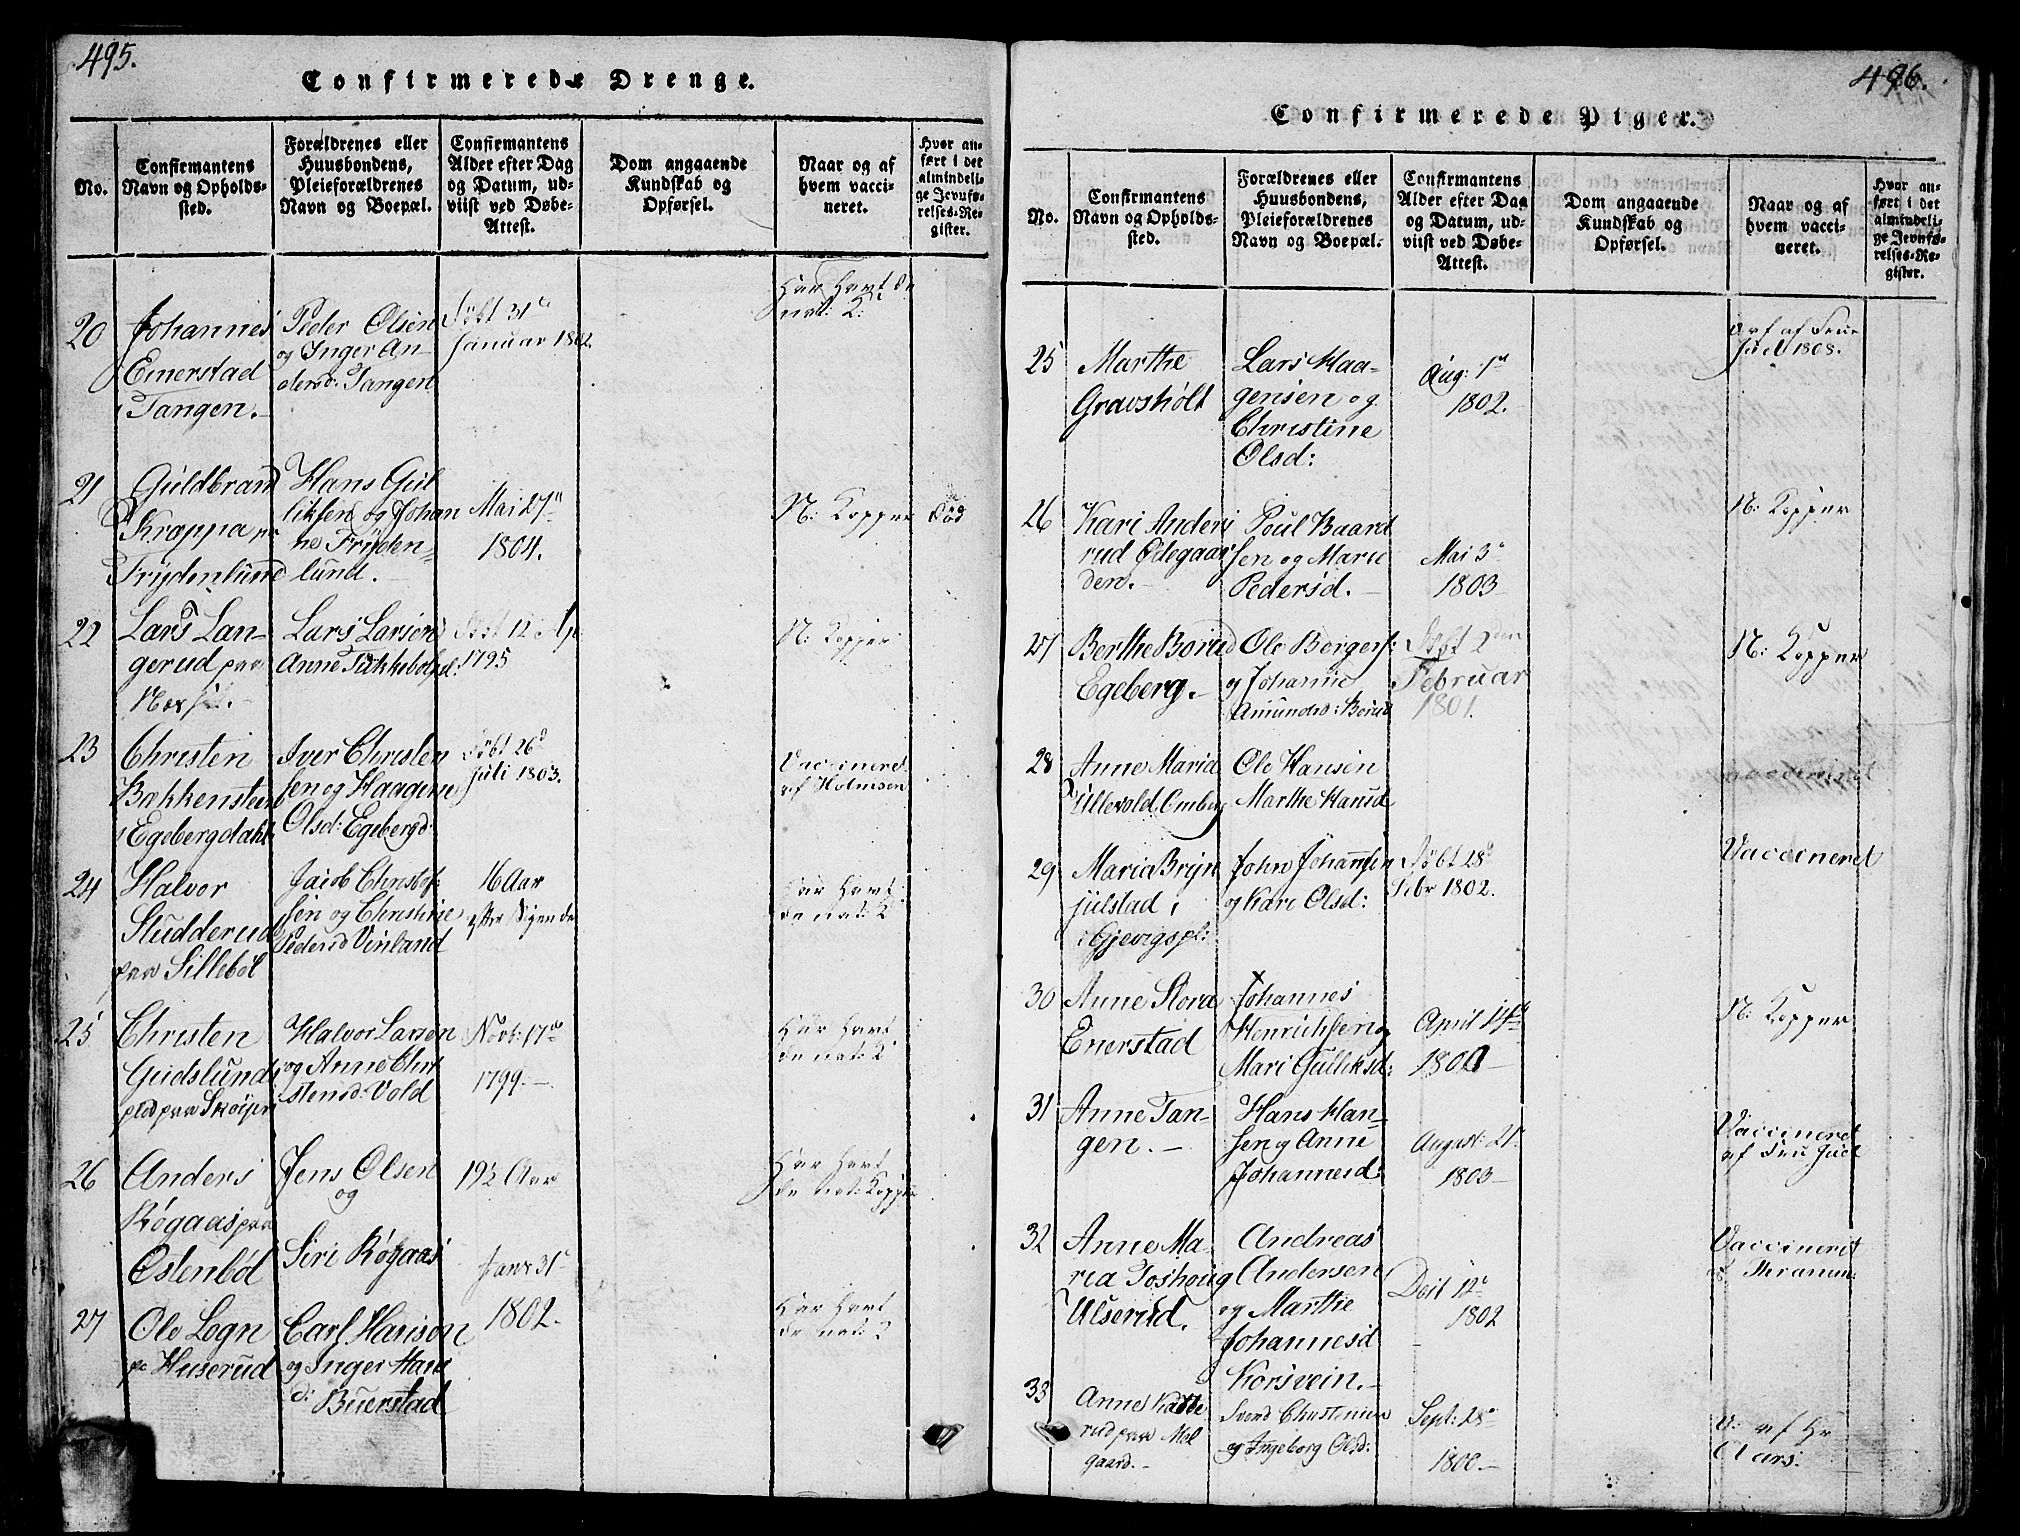 495.
Confirmerede Drenge.
No.
Confirmantens
Navn og Opholds-
sted.
Forældrenes eller
Huusbondens,
Pleieforældrenes
Navn og Boepæl.
Confirmantens
Alder efter Dag
og Datum, ud-
viist ved Døbe-
Attest.
Dom angaaende
Kundskab og
Opførsel.
Naar og af
hvem vacci-
neret.
Hvor an-
ført i det
almindeli-
ge Jevnfø-
relses-Re-
gister.
20
Johannes
Einerstad
Tangen.
Peder Olsen
og Inger An-
dersd: Tangen
Døbt 31
Januar 1802
Har havt de
nat: K:
21
Guldbrand
Kroppa
Frydenlund
Hans Gul
liksen og Johan
ne Fryden-
lund.
Mai 27
1804.
N: Kopper
Død
22
Lars Lan-
gerud paa
Lars Larsen
Anne
Døbt 12
1795
N: Kopper
23
Christen
Bækkensteen
Egebergdahl
Iver Christen
sen og Haagene
Olsd: Egebergd:
Døbt 26
Juli 1803.
Vaccineret
af Holmsen
24
Halvor
Studderud
paa Sillebøl
Jacob Christof
sen og Christine
Pedersd Vinland
16 Aar
efter Sigende
Har havt
de nat: K
25
Christen
Gudslund
pld paa Skøyen
Halvor Larsen
og Anne Chri
stensd: Vold
Novb: 17
1799.
Har havt
de nat: K
26
Anders
Røgaas paa
Ostenbøl
Jens Olsen
og
Siri Røgaas
19½ Aar
Har havt
de nat: Kopper
27
Ole Løgn
pa Huserud
Carl Hansen
og Inger Hans
d: Buerstad
Janr 31
1802.
Har havt
de nat: K
496.
Confirmerede Piger.
No.
Confirmantens
Navn og Opholds-
sted.
Forældrenes eller
Huusbondens,
Pleieforældrenes
Navn og Boepæl.
Confirmantens
Alder efter Dag
og Datum, ud-
viist ved Døbe-
Attest.
Dom angaaende
Kundskab og
Opførsel.
Naar og af
hvem vacci-
neret.
Hvor an-
ført i det
almindeli-
ge Jevnfø-
relses-Re-
gister.
25
Marthe
Gravsholt
Lars Haa-
gensen og
Christine
Olsd:
Aug: 1
1802.
af Frue
Juel 1808.
26
Kari Anders
rud Ødegaar
den.
Poul Baard
sen og Marie
Pedersd.
Mai 3
1803
N: Kopper
27
Berthe Borud
Egeberg.
Ole Borgers:
og Johanne
Amundsd: Borud
Døbt 2den
Februar
1801.
N: Kopper
28
Anne Maria
Ullevold Omberg
Ole Hansen
Marthe Hansd
29
Maria Bryn
julstad i
Gjevigspl:
John Johannsen
og Kari Olsd:
Døbt 28
Febr 1802.
Vaccineret
30
Anne Stora
Enerstad
Johannes
Henrichsen og
Mari Gulliksd:
April 14
1800
N: Kopper
31
Anne Tan-
gen.
Hans Han-
sen og Anne
Johannesd:
August: 21
1803
Vaccineret
af Fru Juel
32
Anne Ma-
ria Toshoug
Ulserud.
Andreas
Andersen
og Marthe
Johannesd
Korsvein.
Deit 12
1802
Vaccineret
33
Anne Kadde
rud paa Mel
gaard.
Svend Christensen
og Ingeborg Olsd:
Sept: 28
1800.
V: af Hr
Aars.